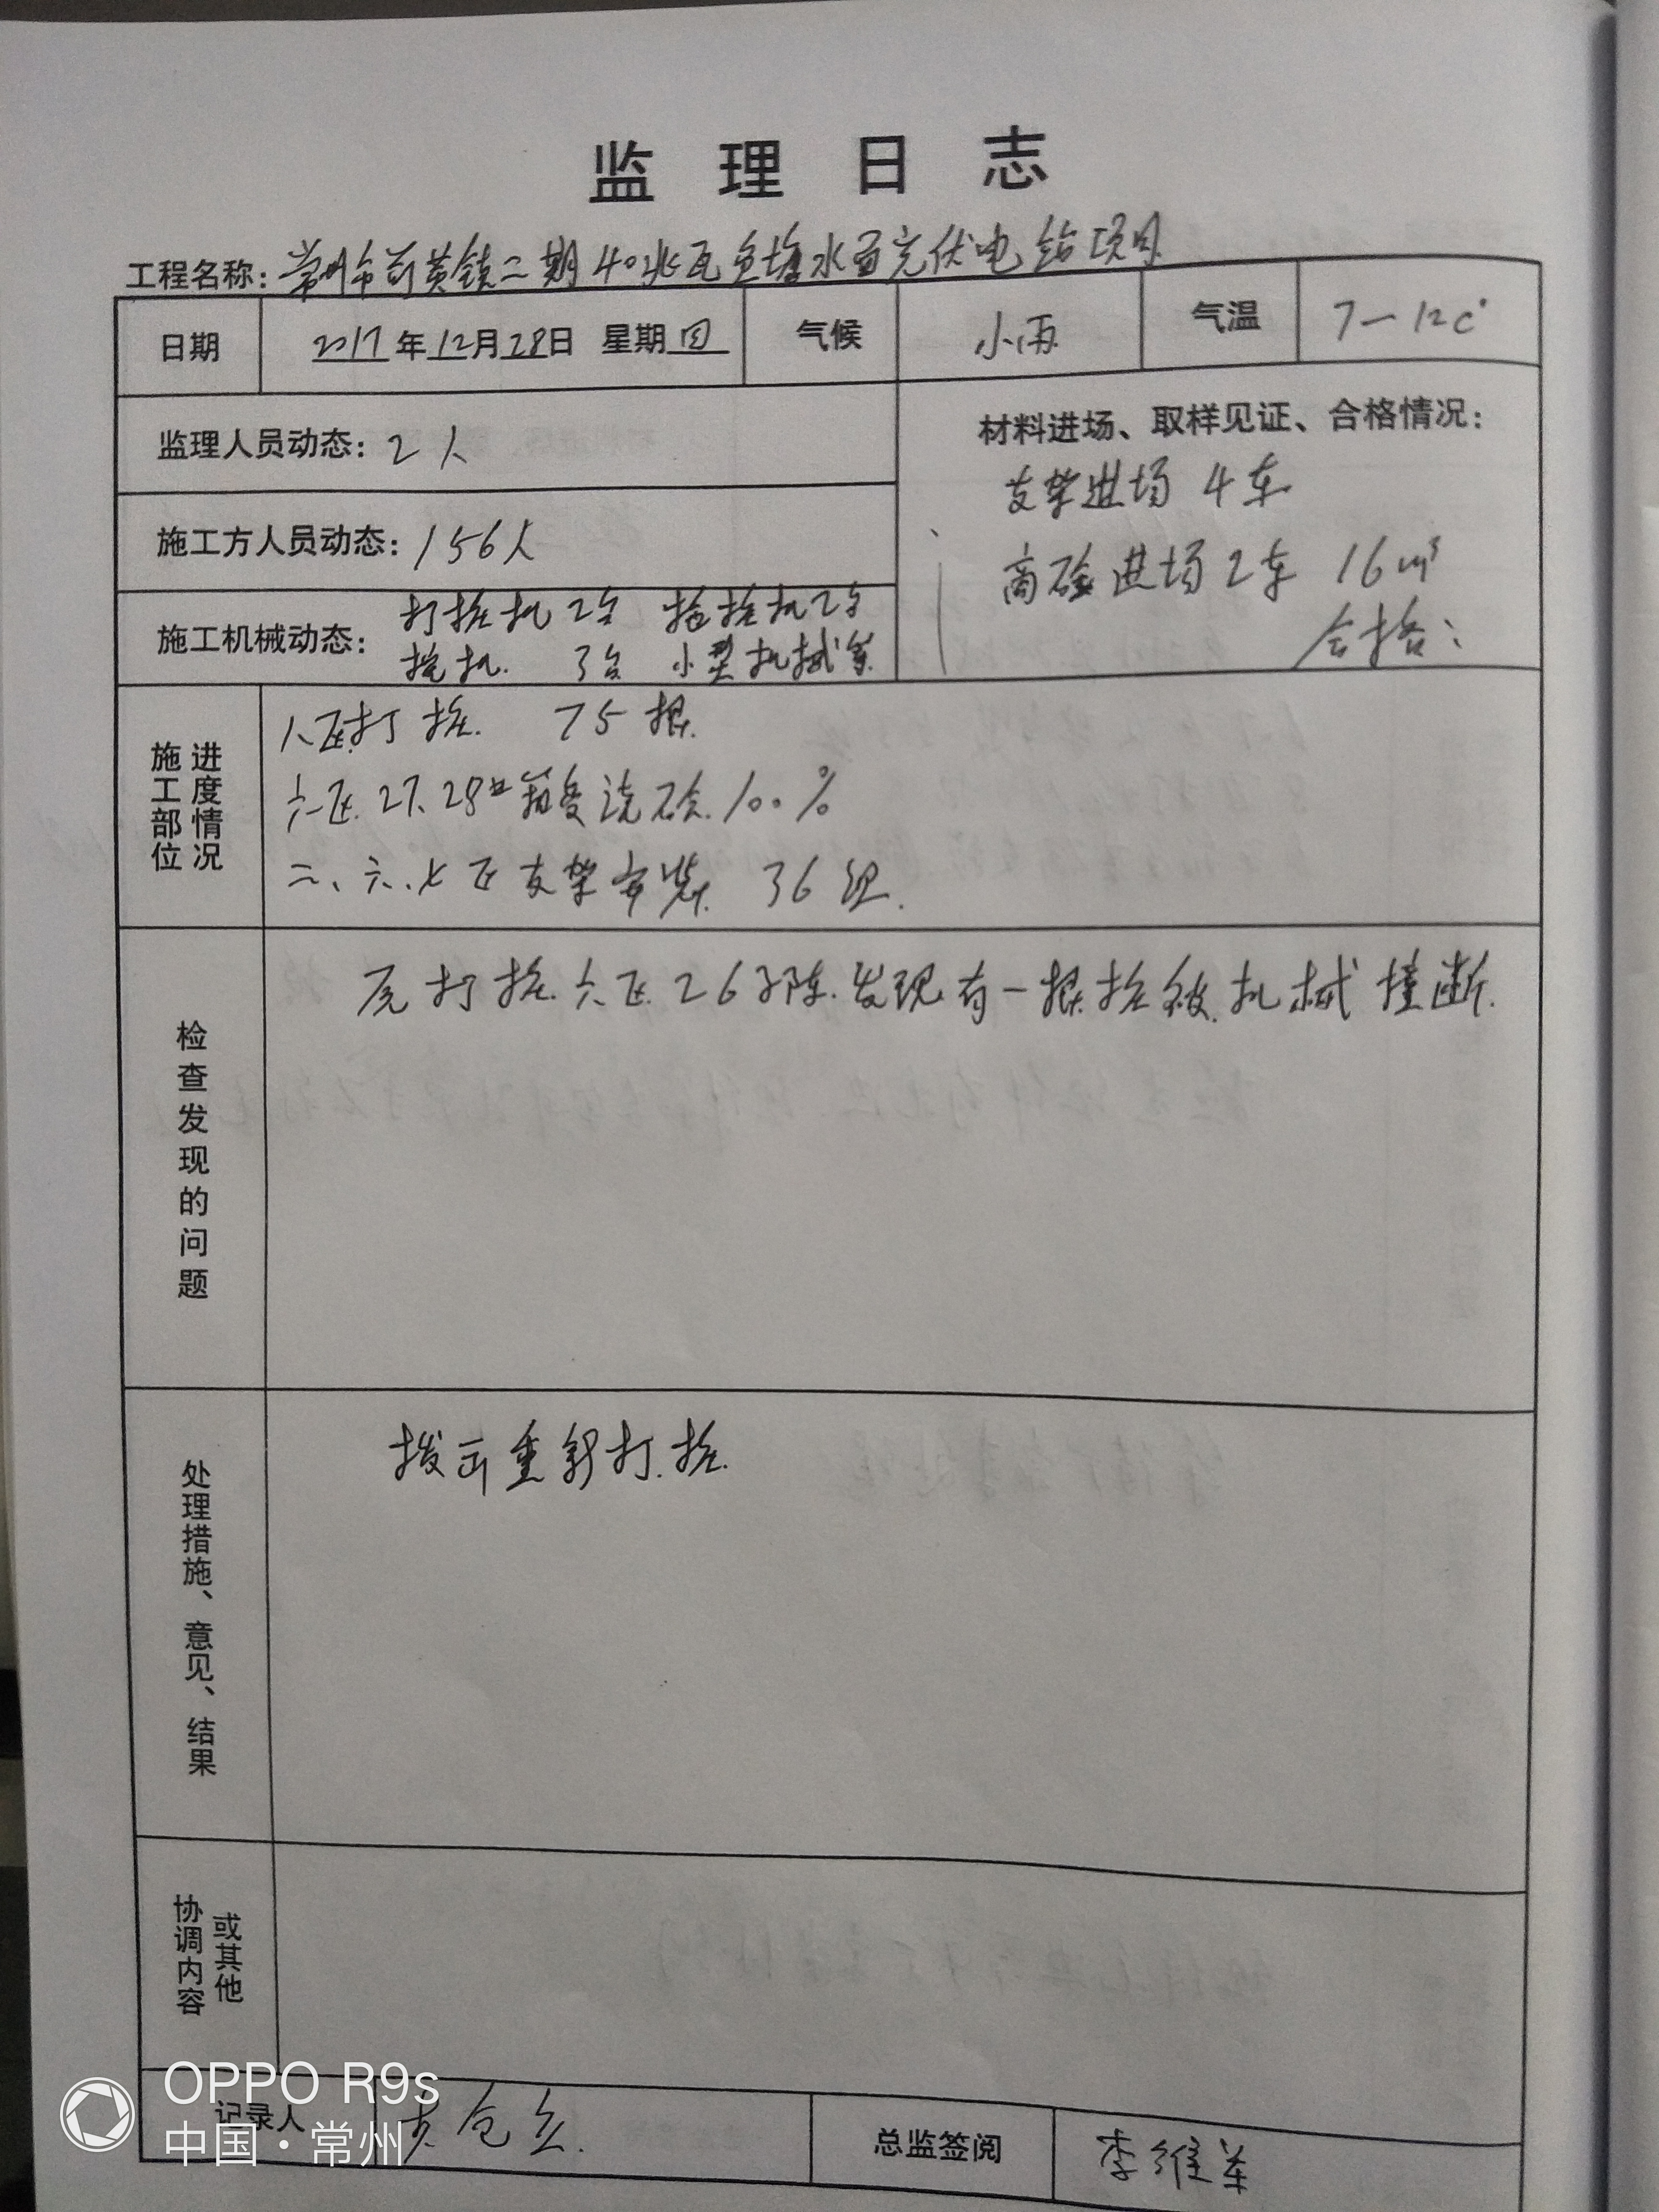 监理日志
工程名称：常州市前黄镇二期40兆瓦鱼塘水面光伏电站项目
日期 2017年12月28日 星期四 气候 小雨 气温 7—12C°
监理人员动态：2人
材料进场、取样见证、合格情况：
支架进场 4车
商砼进场2车 16m³
合格；
施工方人员动态：156人
施工机械动态：打桩机2台 拖桩机2台
挖机 3台 小型机械等
施工部位 进度情况
八区打桩 75根
六区27、28# 箱变浇砼100%
二、六、七区支架安装 36组.
检查发现的问题
打桩六区26子阵发现有一根桩被机械撞断.
处理措施、意见、结果
拨出重新打桩.
协调内容 或其他
记录人
总监签阅 李维
OPPO R9s
中国·常州